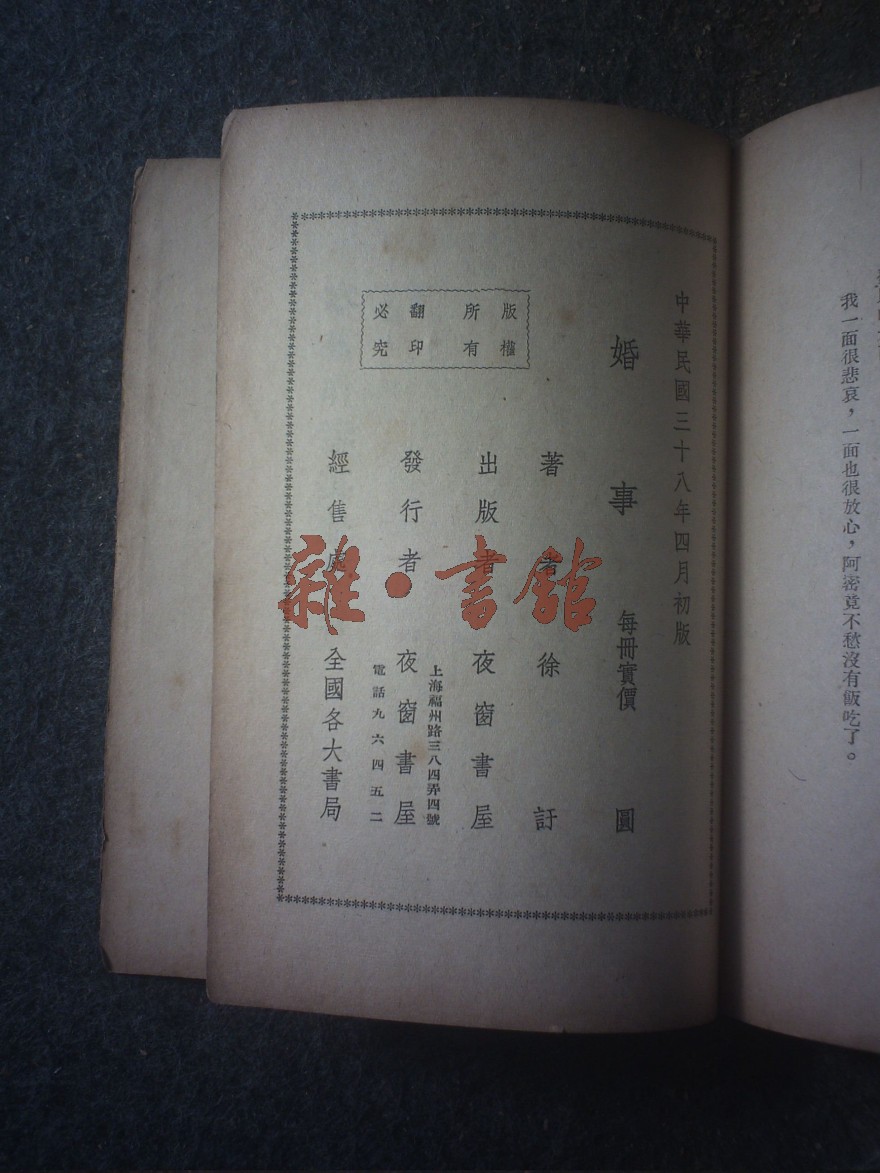 我一面很悲哀，一面也很放心，阿密竟不愁沒有飯吃了。
中華民國三十八年四月初版
婚事 每冊實價 圓
著者 徐訏
出版者 夜窗書屋
上海福州路三八四弄四號
發行者 夜窗書屋
電話九六四五二
經售處 全國各大書局
版權所有
翻印必究
雜·書館